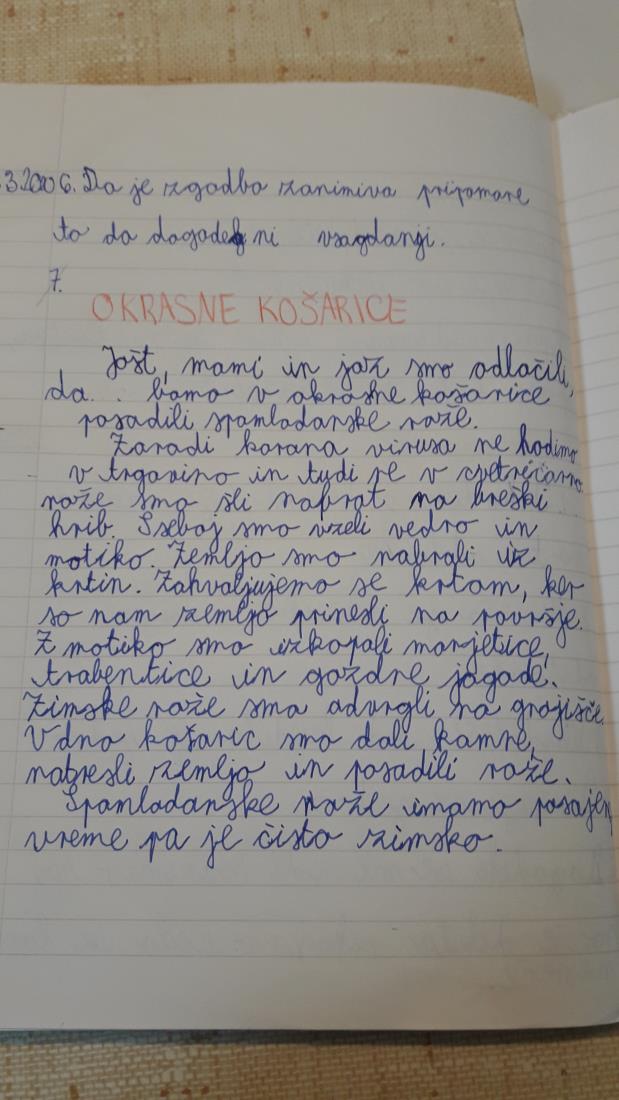 3.2006. Da je zgodba zanimiva pripomore
to da dogodek ni vsagdanji.
7.
OKRASNE KOŠARICE
Jošt, mami in jaz smo odločili,
da . . bomo v okrasne košarice
posadili spomladanske rože.
Zaradi korona virusa ne hodimo
v trgovino in tudi ne v cvetličarno
rože smo šli nabrat na breški
hrib. S seboj smo vzeli vedro in
motiko. Zemljo smo nabrali iz
krtin. Zahvaljujemo se krtom, ker
so nam zemljo prinesli na površje.
Z motiko smo izkopali marjetice,
trobentice in gozdne jagode.
Zimske rože smo odvrgli na grajišče.
V dno košaric smo dali kamne,
natresli zemljo in posadili rože.
Spomladanske rože imamo posajen
vreme pa je čisto zimsko.